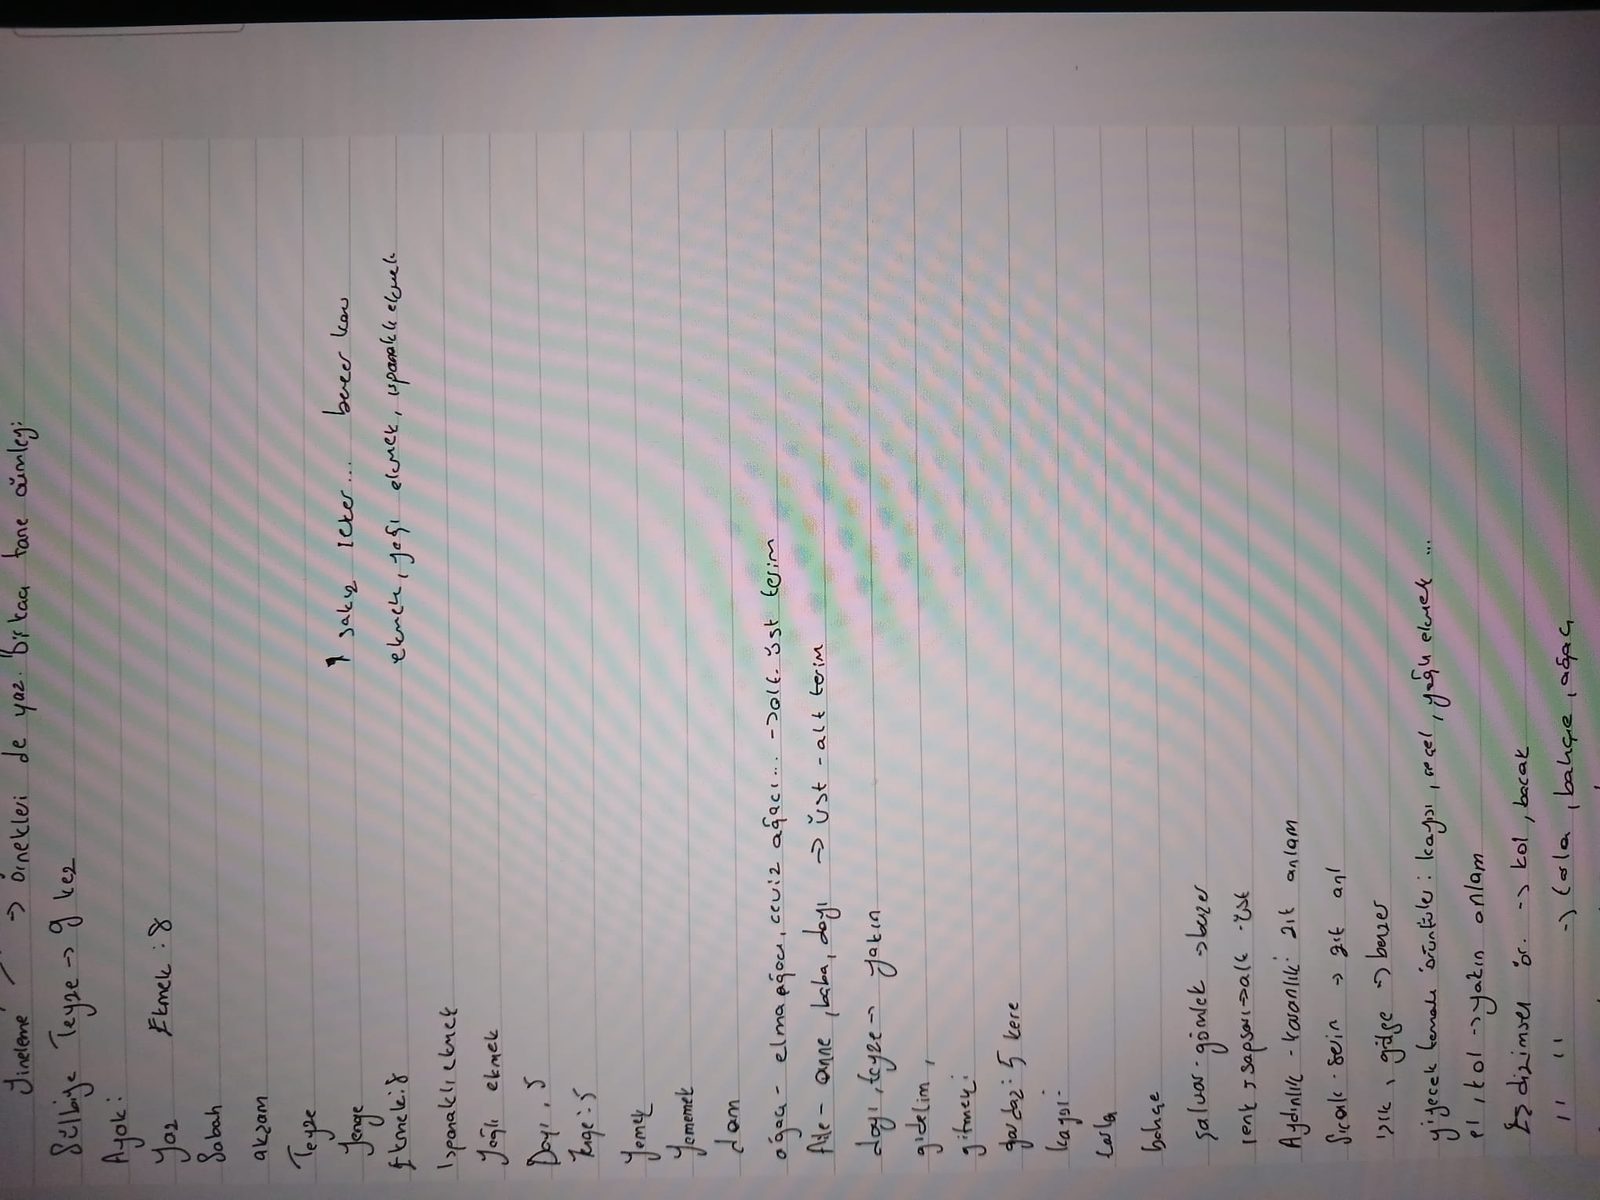 Yineleme → örnekleri de yaz. birkaç tane cümley:
Sülbiye Teyze → 9 kez
Ayak:
Yaz Ekmek : 8
Sabah
akşam
Teyze
Yenge sakız şeker... benzer kav
Ekmek:8 ekmek, yağlı ekmek, ıspanaklı ekmek
Ispanaklı ekmek
Yağlı ekmek
Dayı, 5
Köşe:5
Yemek
Yememek
dam
ağaç - elma ağacı, ceviz ağacı... → alt-üst terim
Aile - anne, baba, dayı → üst - alt terim
dayı, teyze → yakın
gidelim,
gitmek:
gardaz: 5 kere
kayısı-
tarla
bahçe
şalvar-gömlek → benzer
renk → sapsarı → alt -üst
Aydınlık - karanlık: zıt anlam
Sıcak-serin → zıt anl
ışık, gölge → benzer
yiyecek temalı örüntüler: kayısı, reçel, yağlı ekmek ...
el, kol → yakın anlam
Eş dizimsel ör. → kol, bacak
'' '' → tarla, bahçe, ağaç